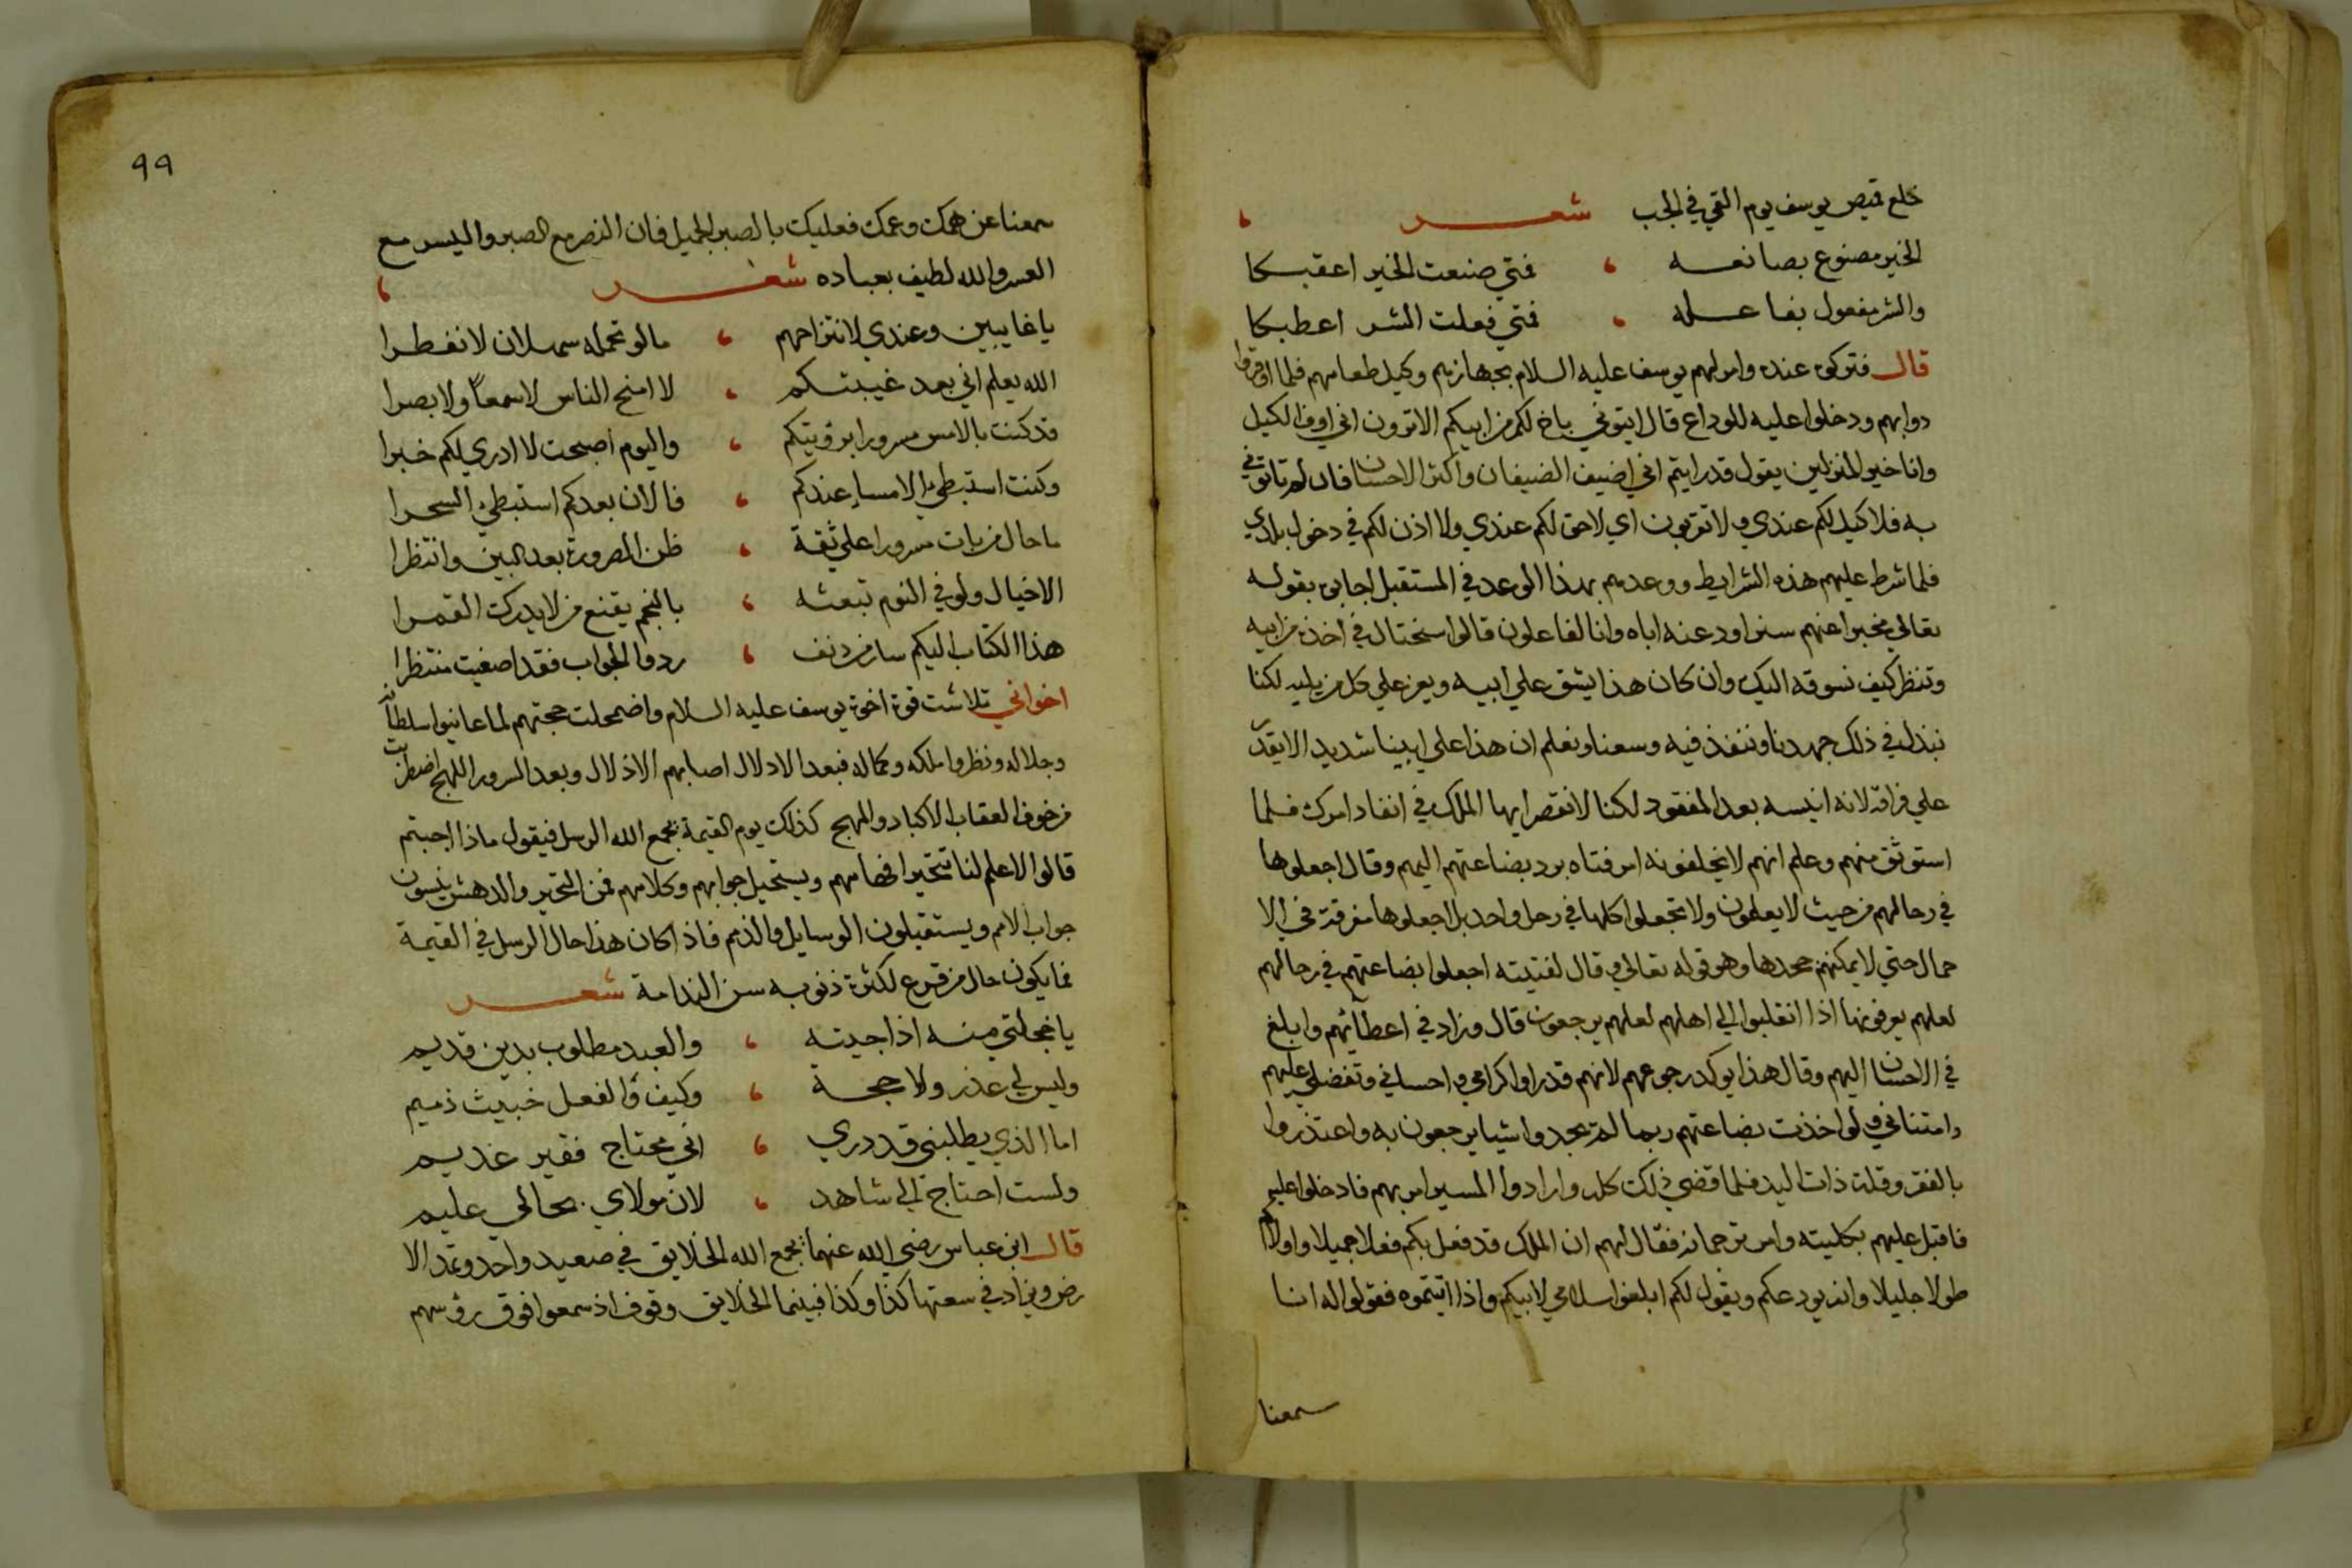 خلع قميص يوسف يوم القي في الجب شعر
الخير مصنوع بصانعه ، فمتي صنعت الخير اعقبكا
والشر مفعول بفاعله ، فمتي فعلت الشر اعطبكا
قال فتركوه عنده وامر لهم يوسف عليه السلام بجهازهم وكيل طعامهم فلما اوقروا
دوابهم ودخلوا عليه للوداع قال ايتوني باخ لكم من ابيكم الا ترون اني اوف الكيل
وانا خير المنزلين يقول قد رايتم اني اضيف الضيفان واكثر الاحسان فان لم تاتوني
به فلا كيل لكم عندي ولا تقربون اي لا حق لكم عندي ولا اذن لكم في دخول بلادي
فلما شرط عليهم هذه الشرايط ووعدهم بهذا الوعد في المستقبل اجابوه بقوله
تعالي مخبرا عنهم سنراود عنه اباه وانا لفاعلون قالوا سنحتال في اخذه من ابيه
وتنظر كيف نسوقه اليك وان كان هذا يشق علي ابيه ويعز علي كل من يليه لكنا
نبذل في ذلك جهدنا وننفذ فيه وسعنا ونعلم ان هذا علي ابينا شديد الا يقدر
علي فراقه لانه انيسه بعد المفقود لكنا لا نقصر ايها الملك في انفاد امرك فلما
استوثق منهم وعلم انهم لا يخلفونه امر فتاه برد بضاعتهم اليهم وقال اجعلوها
في رحالهم من حيث لا يعلمون ولا تجعلوا كلها في رحل واحد بل اجعلوها مفرقة في الا
حمال حتي لا يمكنهم جحدها وهو قوله تعالي وقال لفتيته اجعلوا بضاعتهم في رحالهم
لعلهم يعرفونها اذا انقلبوا الي اهلهم لعلهم يرجعون قال وزاد في اعطآئهم وابلغ
في الاحسان اليهم وقال هذا يوكد رجوعهم لانهم قد راوا اكرامي واحساني وتفضلي عليهم
وامتناني ولو اخذت بضاعتهم ربما لم يجدوا شيا يرجعون به واعتذروا
بالفقر وقلة ذات اليد فلما قضي ذلك كله وارادوا المسير امر بهم فادخلوا عليه
فاقبل عليهم بكليته وامر ترجمانه فقال لهم ان الملك قد فعل بكم فعلا جميلا واولاكم
طولا جليلا وانه يودعكم ويقول لكم ابلغوا سلامي لابيكم واذا اتيتموه فقولوا له انا
سمعنا
٩٩
سمعنا عن همك وغمك فعليك بالصبر الجميل فان النصر مع الصبر واليسر مع
العسر والله لطيف بعباده شعر
يا غايبين وعندي لانتزاحهم ، ما لو تحمله سهلان لانفطرا
الله يعلم اني بعد غيبتكم ، لا امنح الناس لا سمعاً ولا بصرا
قد كنت بالامس مسرورا برؤيتكم ، واليوم اصبحت لا ادري لكم خبرا
وكنت استبطيء الامساء عندكم ، فالان بعدكم استبطيء السحرا
ما حال من بات مسرورا علي ثقة ، ظن الضرورة بعد البين وانتظرا
الا خيال ولو في النوم تبعثه ، بالنجم يقنع من لا يدرك القمرا
هذا الكتاب اليكم سار من دنف ، ردوا الجواب فقد اصغيت منتظرا
اخواني تلاشت قوة اخوة يوسف عليه السلام واضمحلت حجتهم لما عاينوا سلطانه
وجلاله ونظروا ملكه وكماله فبعد الادلال اصابهم الاذلال وبعد السرور اللهج اضطربت
من خوف العقاب الاكباد والمهج كذلك يوم القيمة يجمع الله الرسل فيقول ماذا اجبتم
قالوا لا علم لنا تتحير افهامهم ويستحيل جوابهم وكلامهم فمن التحير والدهش ينسون
جواب الامم ويستقيلون الوسايل والذمم فاذا كان هذا حال الرسل في القيمة
فما يكون حال من قرع لكثرة ذنوبه سن الندامة شعر
يا خجلتي منه اذا جيته ، والعبد مطلوب بدين قديم
وليس لي عذر ولا حجة ، وكيف والفعل خبيث ذميم
اما الذي يطلبني قد دري ، اني محتاج فقير عديم
ولست احتاج الي شاهد ، لان مولاي بحالي عليم
قال ابن عباس رضي الله عنهما يجمع الله الخلايق في صعيد واحد وتمد الا
رض ويزاد في سعتها كذا وكذا فبينما الخلايق وقوف اذ سمعوا فوق رؤسهم